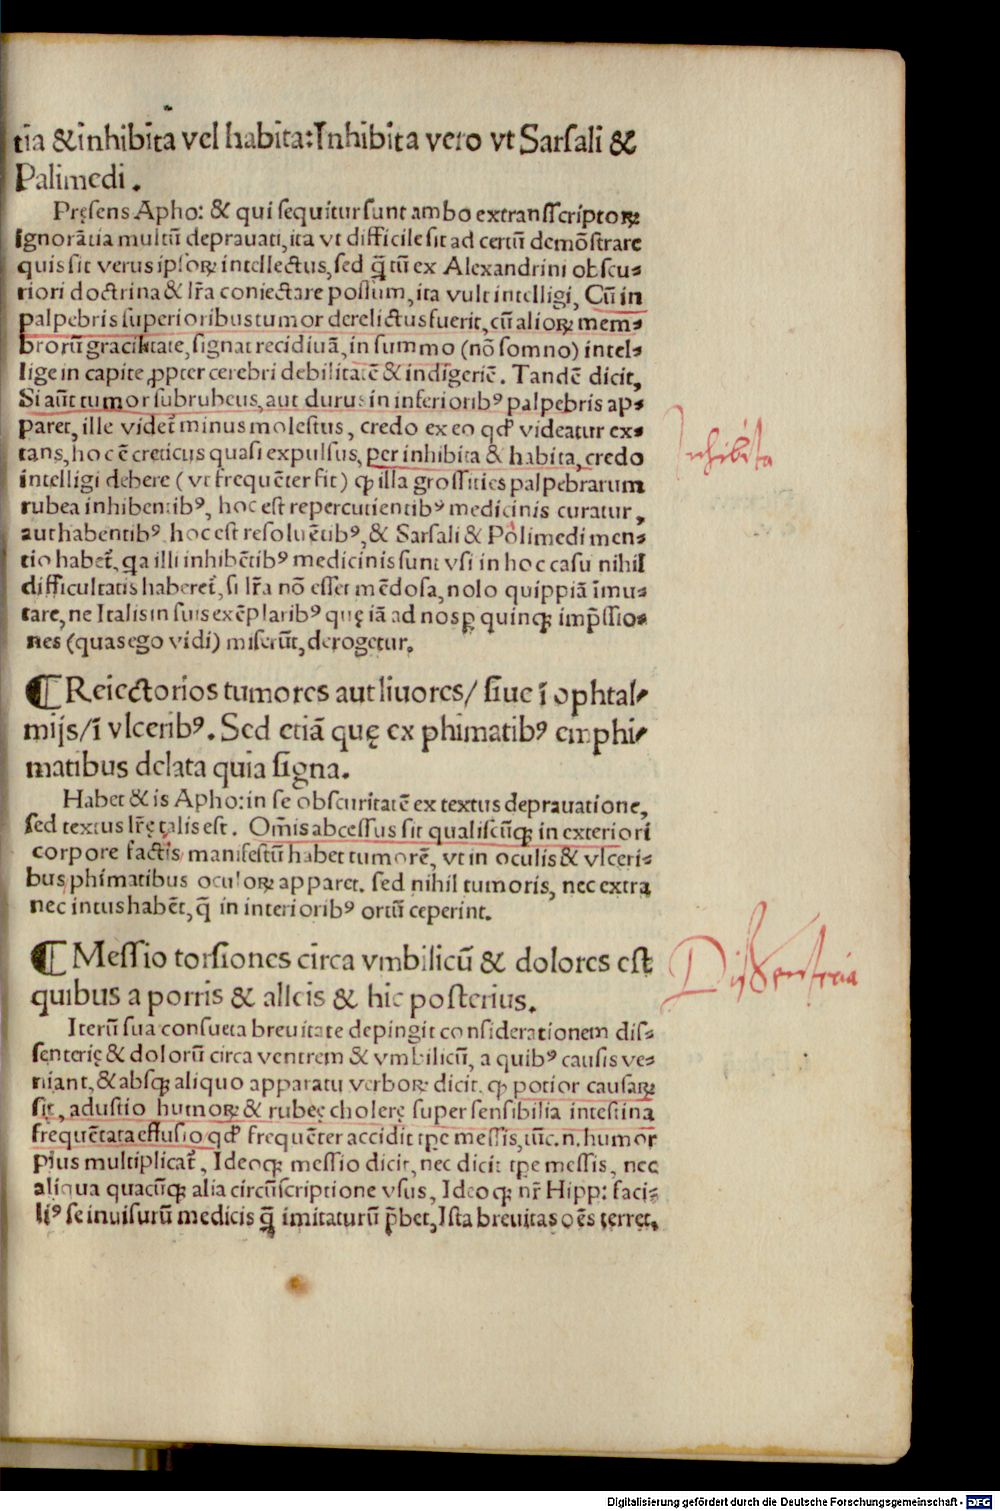 tia & inhibita vel habita: Inhibita vero vt Sarsali &
Palimedi.
Pręsens Apho: & qui sequitur sunt ambo ex transscriptoꝝ
ignorātia multū deprauati, ita vt difficile sit ad certū demōstrare
quis sit verus ipsoꝝ intellectus, sed q̄tū ex Alexandrini obscu-
riori doctrina & lr̄a coniectare possum, ita vult intelligi, Cū in
palpebris superioribus tumor derelictus fuerit, cū alioꝝ mem-
brorū gracilitate, signat recidiuā, in summo (nō somno) intel-
lige in capite ꝓpter cerebri debilitatē & indigeriē. Tandē dicit,
Si aūt tumor subrubeus, aut durus in inferioribꝰ palpebris ap-
paret, ille videt̄ minus molestus, credo ex eo qd̕ videatur ex-
tans, hoc ē creticus quasi expulsus, per inhibita & habita, credo
intelligi debere (vt frequēter fit) ꝙ illa grossities palpebrarum
rubea inhibentibꝰ, hoc est repercutientibꝰ medicinis curatur,
aut habentibꝰ hoc est resoluētibꝰ, & Sarsali & Polimedi men-
tio habet̄, qa illi inhibētibꝰ medicinis sunt vsi in hoc casu nihil
difficultatis haberet̄, si lr̄a nō esset mēdosa, nolo quippiā īmu-
tare, ne Italis in suis exēplaribꝰ quę iā ad nos ꝑ quinqꝫ imp̄ssio-
nes (quas ego vidi) miserūt, derogetur.
¶ Reiectorios tumores aut liuores/ siue ī ophtal-
mijs/ ī vlceribꝰ. Sed etiā quę ex phimatibꝰ emphi-
matibus delata quia signa.
Habet & is Apho: in se obscuritatē ex textus deprauatione,
sed textus lr̄ę talis est. Om̄is abcessus sit qualiscūqꝫ in exteriori
corpore factꝰis manifestū habet tumorē, vt in oculis & vlceri-
bus phimatibus oculoꝝ apparet. sed nihil tumoris, nec extra
nec intus habēt, q̄ in interioribꝰ ortū ceperint.
¶ Messio torsiones circa vmbilicū & dolores est
quibus a porris & alleis & hic posterius.
Iterū sua consueta breuitate depingit considerationem dis-
senterię & dolorū circa ventrem & vmbilicū, a quibꝰ causis ve-
niant, & absqꝫ aliquo apparatu verboꝝ dicit, ꝙ potior causaꝝ
sit, adustio humoꝝ & rubeę cholerę super sensibilia intestina
frequētata effusio qd̕ frequēter accidit tp̄e messis, tūc.n. humor
plus multiplicat̄, Ideoqꝫ messio dicit, nec dicit tp̄e messis, nec
aliqua quacūqꝫ alia circūscriptione vsus, Ideoqꝫ nr̄ Hipp: faci-
liꝰ se inuisurū medicis q̄ imitaturū p̄bet, Ista breuitas oēs terret,
Inhibita
Dissenteria
Digitalisierung gefördert durch die Deutsche Forschungsgemeinschaft - DFG